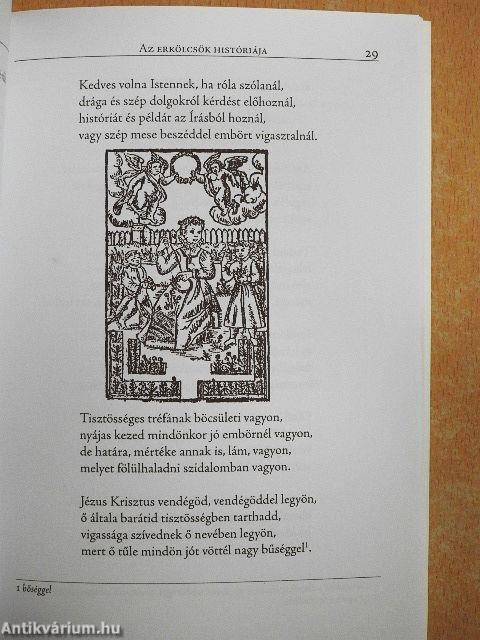 Az erkölcsök históriája 29
Kedves volna Istennek, ha róla szólanál,
drága és szép dolgokról kérdést előhoznál,
históriát és példát az Írásból hoznál,
vagy szép mese beszéddel embört vigasztalnál.
Tisztösséges tréfának böcsületi vagyon,
nyájas kezed mindönkor jó embörnél vagyon,
de határa, mértéke annak is, lám, vagyon,
melyet fölülhaladni szidalomban vagyon.
Jézus Krisztus vendégöd, vendégöddel legyön,
ő általa barátid tisztösségben tarthadd,
vigassága szívednek ő nevében legyön,
mert ő tűle mindön jót vöttél nagy bűséggel¹.
1 bőséggel
Antikvárium.hu